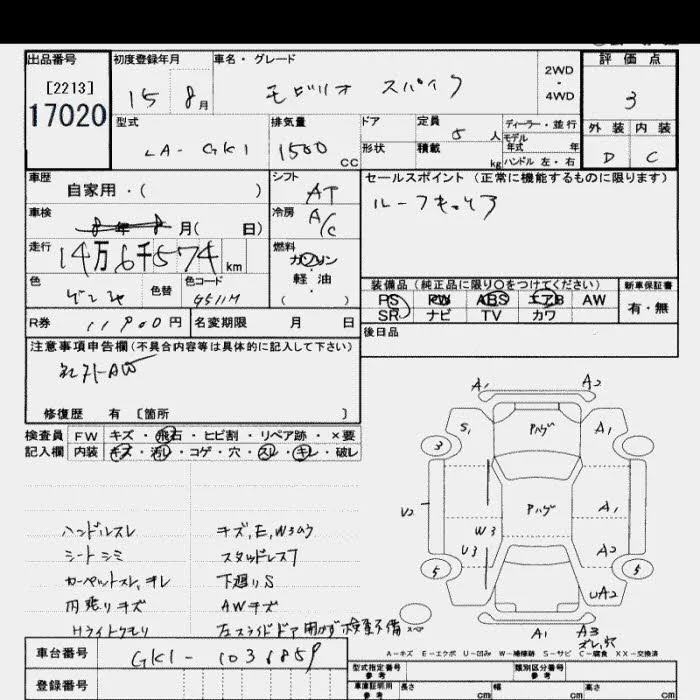 出品番号
[2213]
17020
初度登録年月
15 8月
車名・グレード
モビリオ スパイク
2WD
・
4WD
評価点
3
型式
LA- GK1
排気量
1500 cc
ドア
形状
定員
5人
積載
kg
ディーラー・並行
モデル
年式 年
ハンドル 左・右
外装 内装
D C
車歴
自家用・( )
シフト
AT
セールスポイント (正常に機能するものに限ります)
ルーフキャリア
車検
8年8月( 日)
冷房
A/C
走行
14万6千574km
燃料
ガソリン
軽油
( )
色
色替
色コード
G511M
装備品 (純正品に限り○をつけてください)
新車保証書
PS PW ABS エアB AW
SR ナビ TV カワ
有・無
R券
11900円
名変期限 月 日
後日品
注意事項申告欄(不具合内容等は具体的に記入して下さい)
社外AW
修復歴 有 [箇所 ]
検査員 FW キズ・飛石・ヒビ割・リペア跡・×要
記入欄 内装 キズ・汚レ・コゲ・穴・スレ・キレ・破レ
ハンドルスレ キズ,E,W3のり
シートシミ スタッドレス7
カーペットスレ,キレ 下廻りS
内張りキズ AWキズ
Hライトクモリ 左スライドドア開かず検査不備
A1 A2
S1 Pハゲ A1
3
U2 Pハゲ A1
W3
U3 A2
5 5
UA2
スペ
A1 A3
ズレ,穴
A-キズ E-エクボ U-凹み W-補修跡 S-サビ C-腐食 XX-交換済
車台番号
GK1- 1036859
登録番号
型式指定番号
参考
類別区分番号
参考
車庫証明用
参考
長さ cm 幅 cm 高さ cm